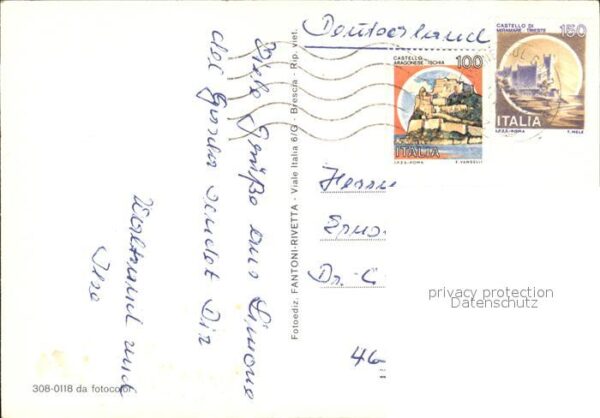 Deutschland
CASTELLO DI
MIRAMARE TRIESTE
150
ITALIA
I.P.Z.S.-ROMA
T. MELE
CASTELLO
ARAGONESE ISCHIA
100
ITALIA
I.P.Z.S.-ROMA
E. VANGELLI
Viele Grüße aus Limone
del Garda sendet Dir
Waltraud und
Fotoediz. FANTONI-RIVETTA - Viale Italia 6/G - Brescia - Rip. viet.
Dr.-
46
privacy protection
Datenschutz
308-0118 da fotocolor